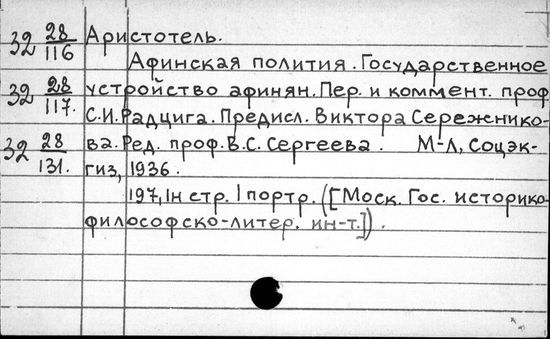 32 28/116 Аристотель.
Афинская полития. Государственное
32 28/117. устройство афинян. Пер. и коммент. проф
С.И. Радцига. Предисл. Виктора Сережнико-
32 28/131. ва. Ред. проф. В.С. Сергеева. М-Л, Соцэк-
гиз, 1936.
197, 1н стр. 1 портр. ([Моск. Гос. историко
философско-литер. ин-т.]).